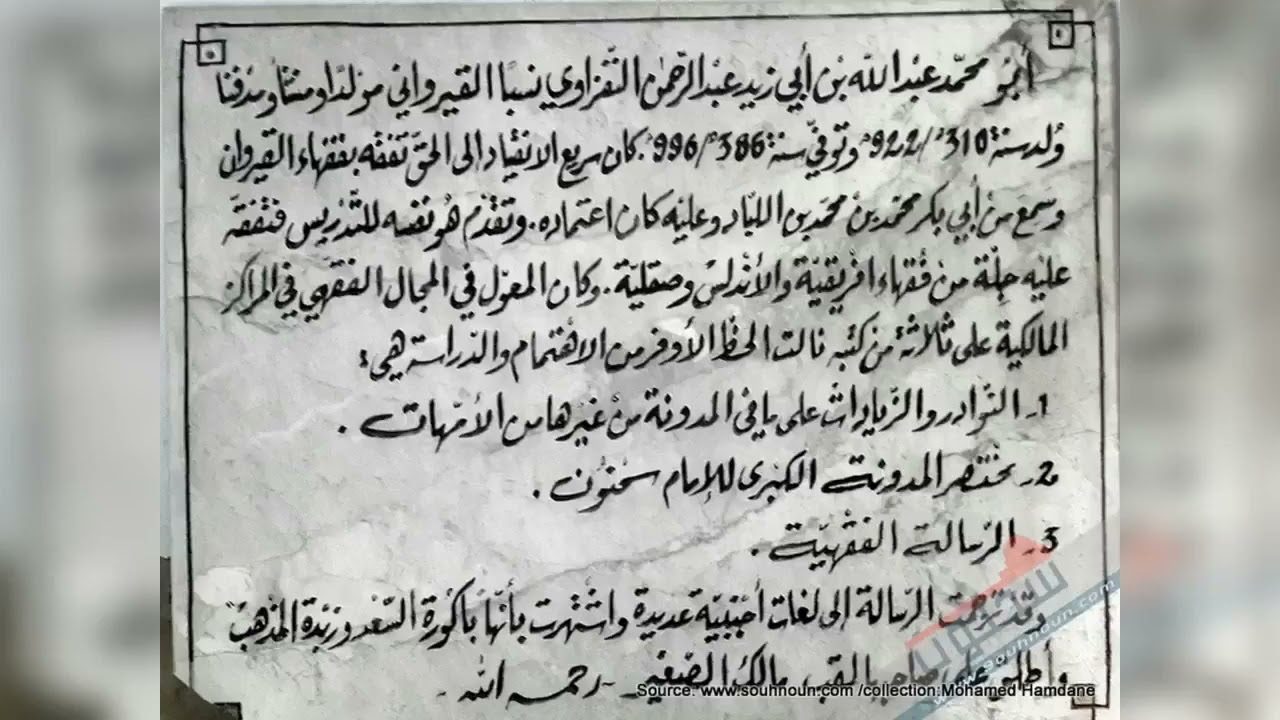 أبو محمّد عبد الله بن أبي زيد عبد الرّحمن النّفزاوي نسبًا القيرواني مولدًا ومنشأ ومدفنا
وُلد سنة 310ھ/922م وتوفّي سنة 386ھ/996م. كان سريع الانقياد الى الحقّ تفقّه بفقهاء القيروان
وسمع من أبي بكر محمّد بن محمّد بن اللبّاد وعليه كان اعتماده. وتقدّم هُو نفسه للتّدريس فتفقّه
عليه جلّة من فُقهاء افريقيّة والأندلس وصقليّة. وكان المعوّل في المجال الفقهي في المراكز
المالكية على ثلاثة من كتبه نالت الحظّ الأوفر من الاهتمام والدّراسة هي:
1ـ النّوادر والزّيادات على ما في المدونة من غيرها من الأمّهات.
2ـ مختصر المدونة الكبرى للإمام سحنُون.
3ـ الرّسالة الفقهيّة.
وقد ترجمت الرّسالة إلى لغات أجنبيّة عديدة واشتهرت بأنّها باكورة السّعد وزبدة المذهب
وأطلق على صاحبها لقب مالك الصّغير ـ رحمه الله ـ
Source: www.souhnoun.com /collection:Mohamed Hamdane
سحنون
www.souhnoun.com